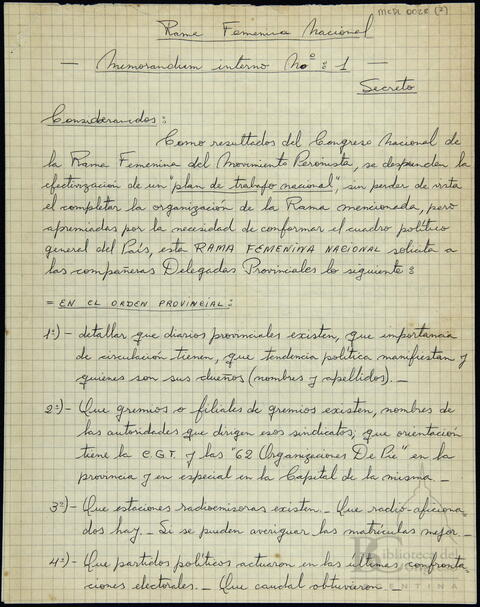 MCPL 0028 (2)
Rama Femenina Nacional
— Memorandum interno Nº: 1 —
Secreto
Considerandos:
Como resultados del Congreso Nacional de
la Rama Femenina del Movimiento Peronista, se desprenden la
efectivización de un "plan de trabajo nacional", sin perder de vista
el completar la organización de la Rama mencionada, pero
apremiadas por la necesidad de conformar el cuadro político
general del País, esta RAMA FEMENINA NACIONAL solicita a
las compañeras Delegadas Provinciales lo siguiente:
= EN EL ORDEN PROVINCIAL:
1º)- detallar que diarios provinciales existen, que importancia
de circulación tienen, que tendencia política manifiestan y
quienes son sus dueños (nombres y apellidos). _
2º)- Que gremios o filiales de gremios existen, nombres de
las autoridades que dirigen esos sindicatos; que orientación
tiene la C.G.T. y las "62 Organizaciones De Pie" en la
provincia y en especial en la Capital de la misma _
3º)- Que estaciones radioemisoras existen. _ Que radio-aficiona-
dos hay. _ Si se pueden averiguar las matrículas mejor. _
4º)- Que partidos políticos actuaron en las últimas confronta-
ciones electorales. _ Que caudal obtuvieron _
Biblioteca del
ARGENTINA